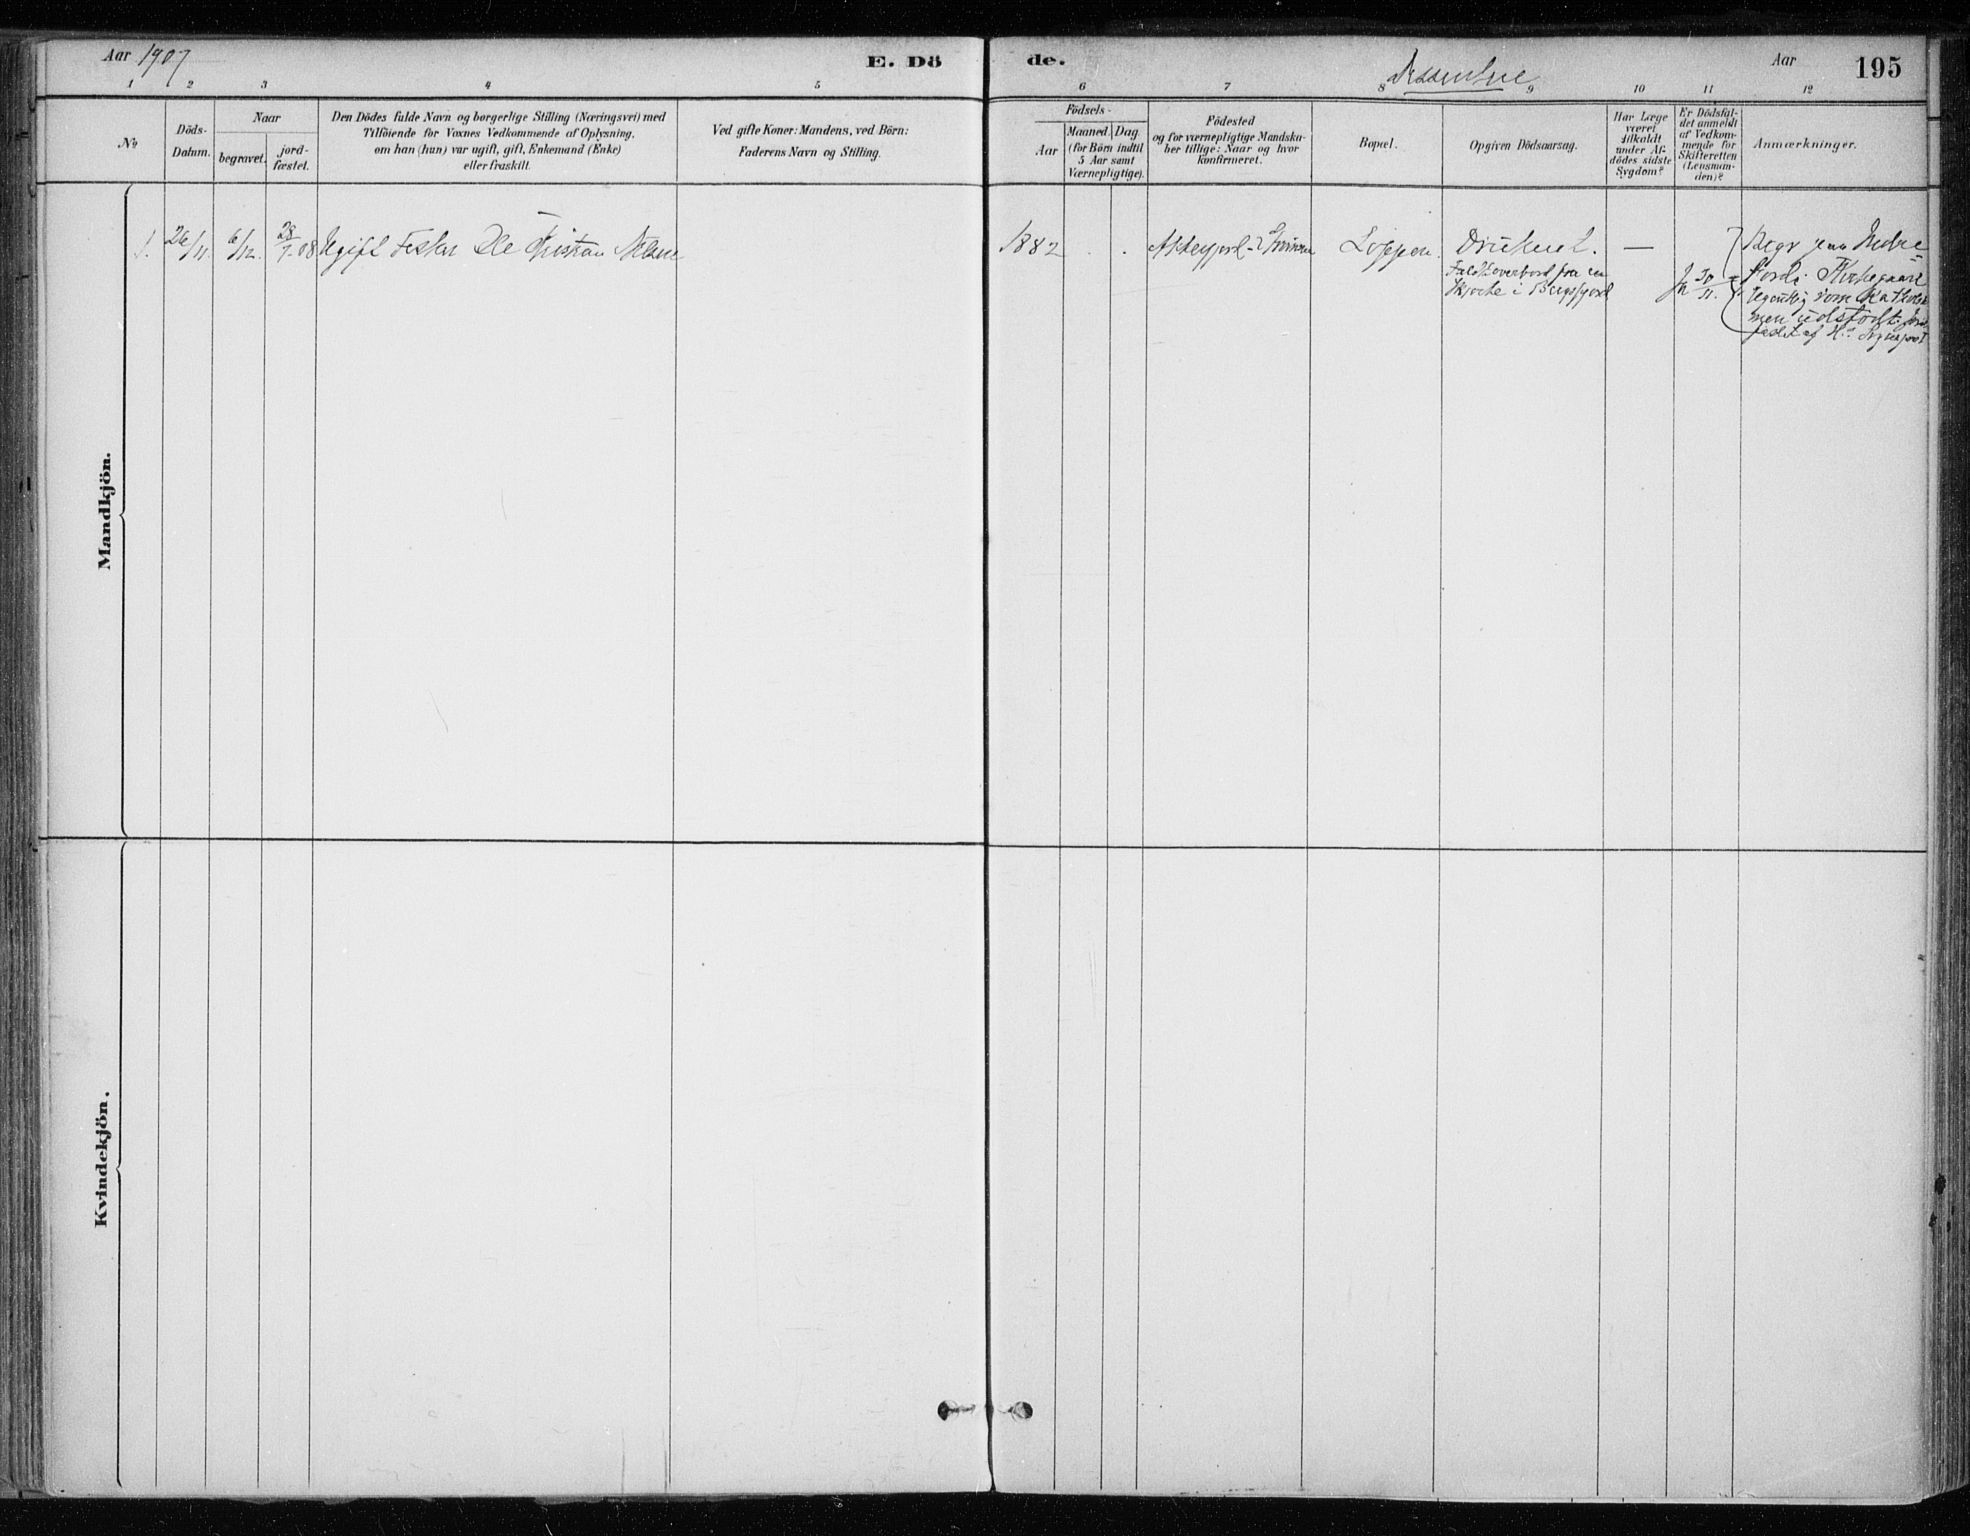 Aar 1907
E. Dö
de.
Dissentere
Aar
195
1 2 3 4 5
6 7 8 9 10 11 12
No
Döds-
Datum.
Naar
begravet.
jord-
fæstet.
Den Dödes fulde Navn og borgerlige Stilling (Næringsvei) med
Tilföiende for Voxnes Vedkommende af Oplysning,
om han (hun) var ugift, gift, Enkemand (Enke)
eller fraskilt.
Ved gifte Koner: Mandens, ved Börn:
Faderens Navn og Stilling.
Födsels-
Aar
Maaned. Dag.
(for Börn indtil
5 Aar samt
Værnepligtige).
Födested
og for værnepligtige Mandska-
ber tillige: Naar og hvor
konfirmeret.
Bopæl.
Opgiven Dödsaarsag.
Har Læge
været
tilkaldt
under Af-
dödes sidste
Sygdom?
Er Dödsfal-
det anmeldt
af Vedkom-
mende for
Skifteretten
(Lensman-
den)?
Anmærkninger.
Mandkjön.
1. 26/11 6/12. 28/1.08 Ugift Fisker Ole Kristian Nilsen
1882 . . Loppen. Druknet. —
Faldt overbord fra en
Skjøite i Bergsfjord
Ja 30/11.
Begr paa Indre
Kirkegaard
Egentlig rom. Katholik
men udstødt. Jord-
fæstet af
Kvindekjön.